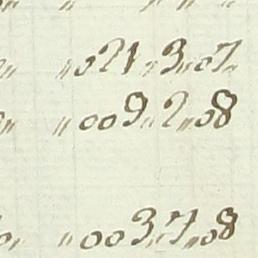 „021„3„07„
„009„2„08
„003„7„08